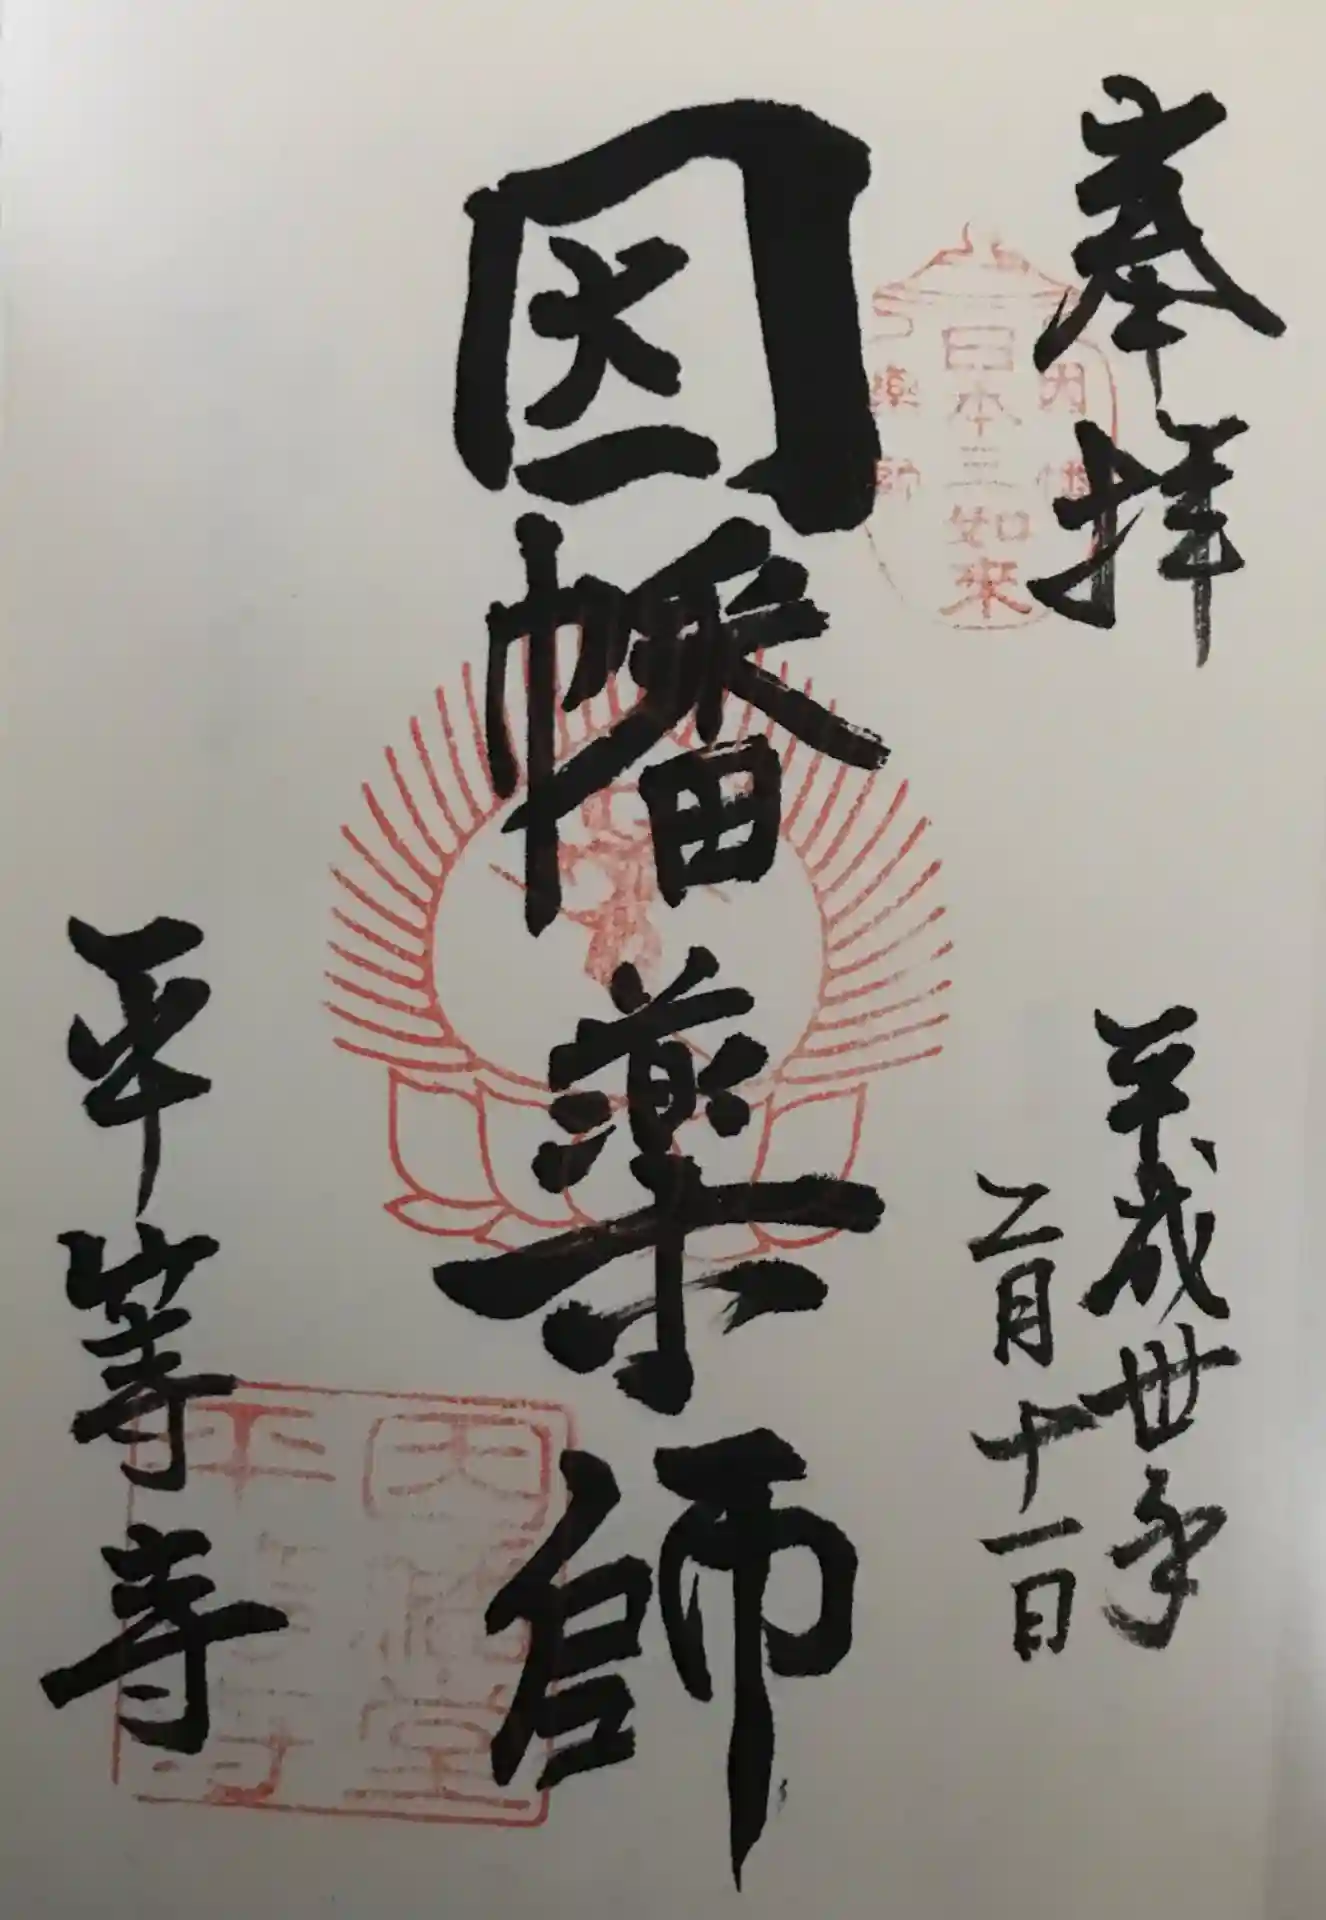 奉拝
平成卅年
二月十一日
因幡
薬師
日本三如来
因幡薬師
因幡堂
平等寺
平等寺